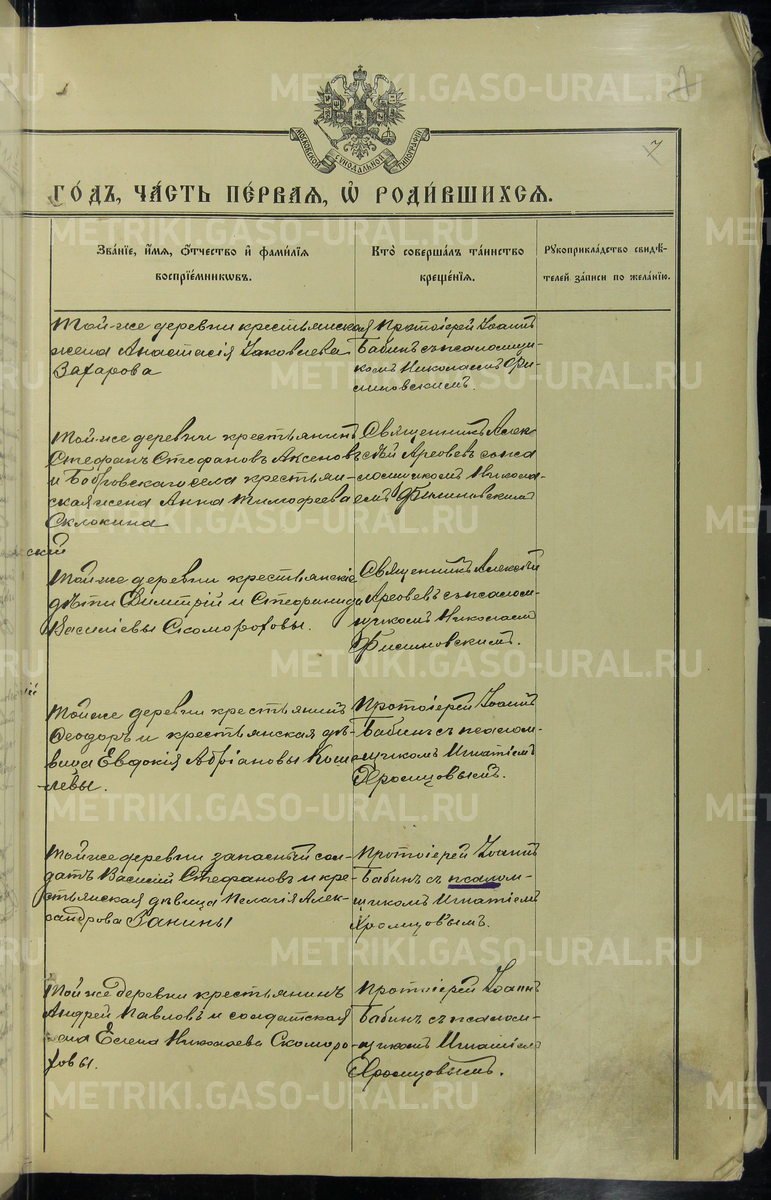 7
7
МОСКОВСКОЙ СѴНОДАЛЬНОЙ ТИПОГРАФІИ
ГО́ДЪ, ЧА́СТЬ ПЕ́РВАЯ, Ѡ҆ РОДИ́ВШИХСЯ.
Зва́нїе, и҆́мя, ѻ҆́тчество и҆ фами́лїя
воспрїе́мникѡвъ.
Кто̀ соверша́лъ та́инство
креще́нїя.
Рꙋкоприкла́дство свидѣ́-
телей за́писи по жела́нїю.
Той-же деревни крестьянская
жена Анастасія Іаковлева
Захарова
Протоіерей Іоаннъ
Бабинъ съ псаломщи-
комъ Николаемъ Фи-
линовскимъ.
Той же деревни крестьянинъ
Стефанъ Стефановъ Аксеновъ
и Бобровскаго села крестьян-
ская жена Анна Тимофеева
Склокина
Священникъ Алек-
сѣй Арефьевъ съ пса
ломщикомъ Никола-
емъ Филиновскимъ
ский
Той же деревни крестьянскіе
дѣти Димитрій и Стефанида
Василіевы Скомороховы.
Священникъ Алексѣй
Арефьевъ съ псалом-
щикомъ Николаемъ
Филиновскимъ.
Той же деревни крестьянинъ
Ѳеодоръ и крестьянская дѣ-
вица Евдокія Адріановы Коше-
левы.
Протоіерей Іоаннъ
Бабинъ съ псалом-
щикомъ Игнатіемъ
Хромцовымъ.
Той же деревни запасный сол-
датъ Василій Стефановъ и кре-
стьянская дѣвица Пелагія Алек-
сандрова Занины
Протоіерей Іоаннъ
Бабинъ съ псалом-
щикомъ Игнатіемъ
Хромцовымъ.
Той же деревни крестьянинъ
Андрей Павловъ и солдатская
жена Елена Николаева Скоморо-
ховы.
Протоіерей Іоаннъ
Бабинъ съ псалом-
щикомъ Игнатіемъ
Хромцовымъ.
METRIKI.GASO-URAL.RU
METRIKI.GASO-URAL.RU
METRIKI.GASO-URAL.RU
METRIKI.GASO-URAL.RU
METRIKI.GASO-URAL.RU
METRIKI.GASO-URAL.RU
METRIKI.GASO-URAL.RU
METRIKI.GASO-URAL.RU